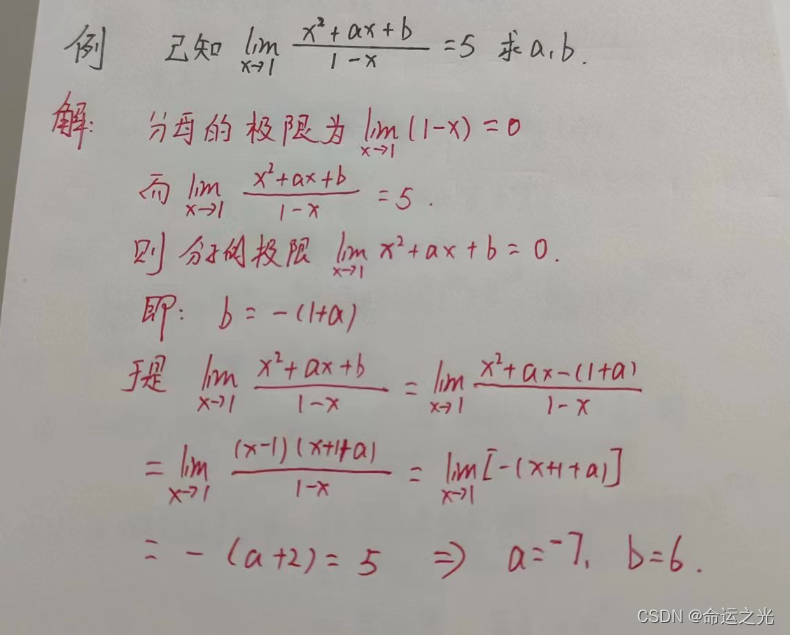 例 已知 lim x→1 (x²+ax+b)/(1-x) =5 求a,b.
解: 分母的极限为 lim x→1 (1-x) = 0
而 lim x→1 (x²+ax+b)/(1-x) = 5.
则 分子的极限 lim x→1 x²+ax+b = 0.
即: b = -(1+a)
于是 lim x→1 (x²+ax+b)/(1-x) = lim x→1 (x²+ax-(1+a))/(1-x)
= lim x→1 (x-1)(x+1+a)/(1-x) = lim x→1 [-(x+1+a)]
= -(a+2) = 5 ⇒ a=-7, b=6.
CSDN @命运之光